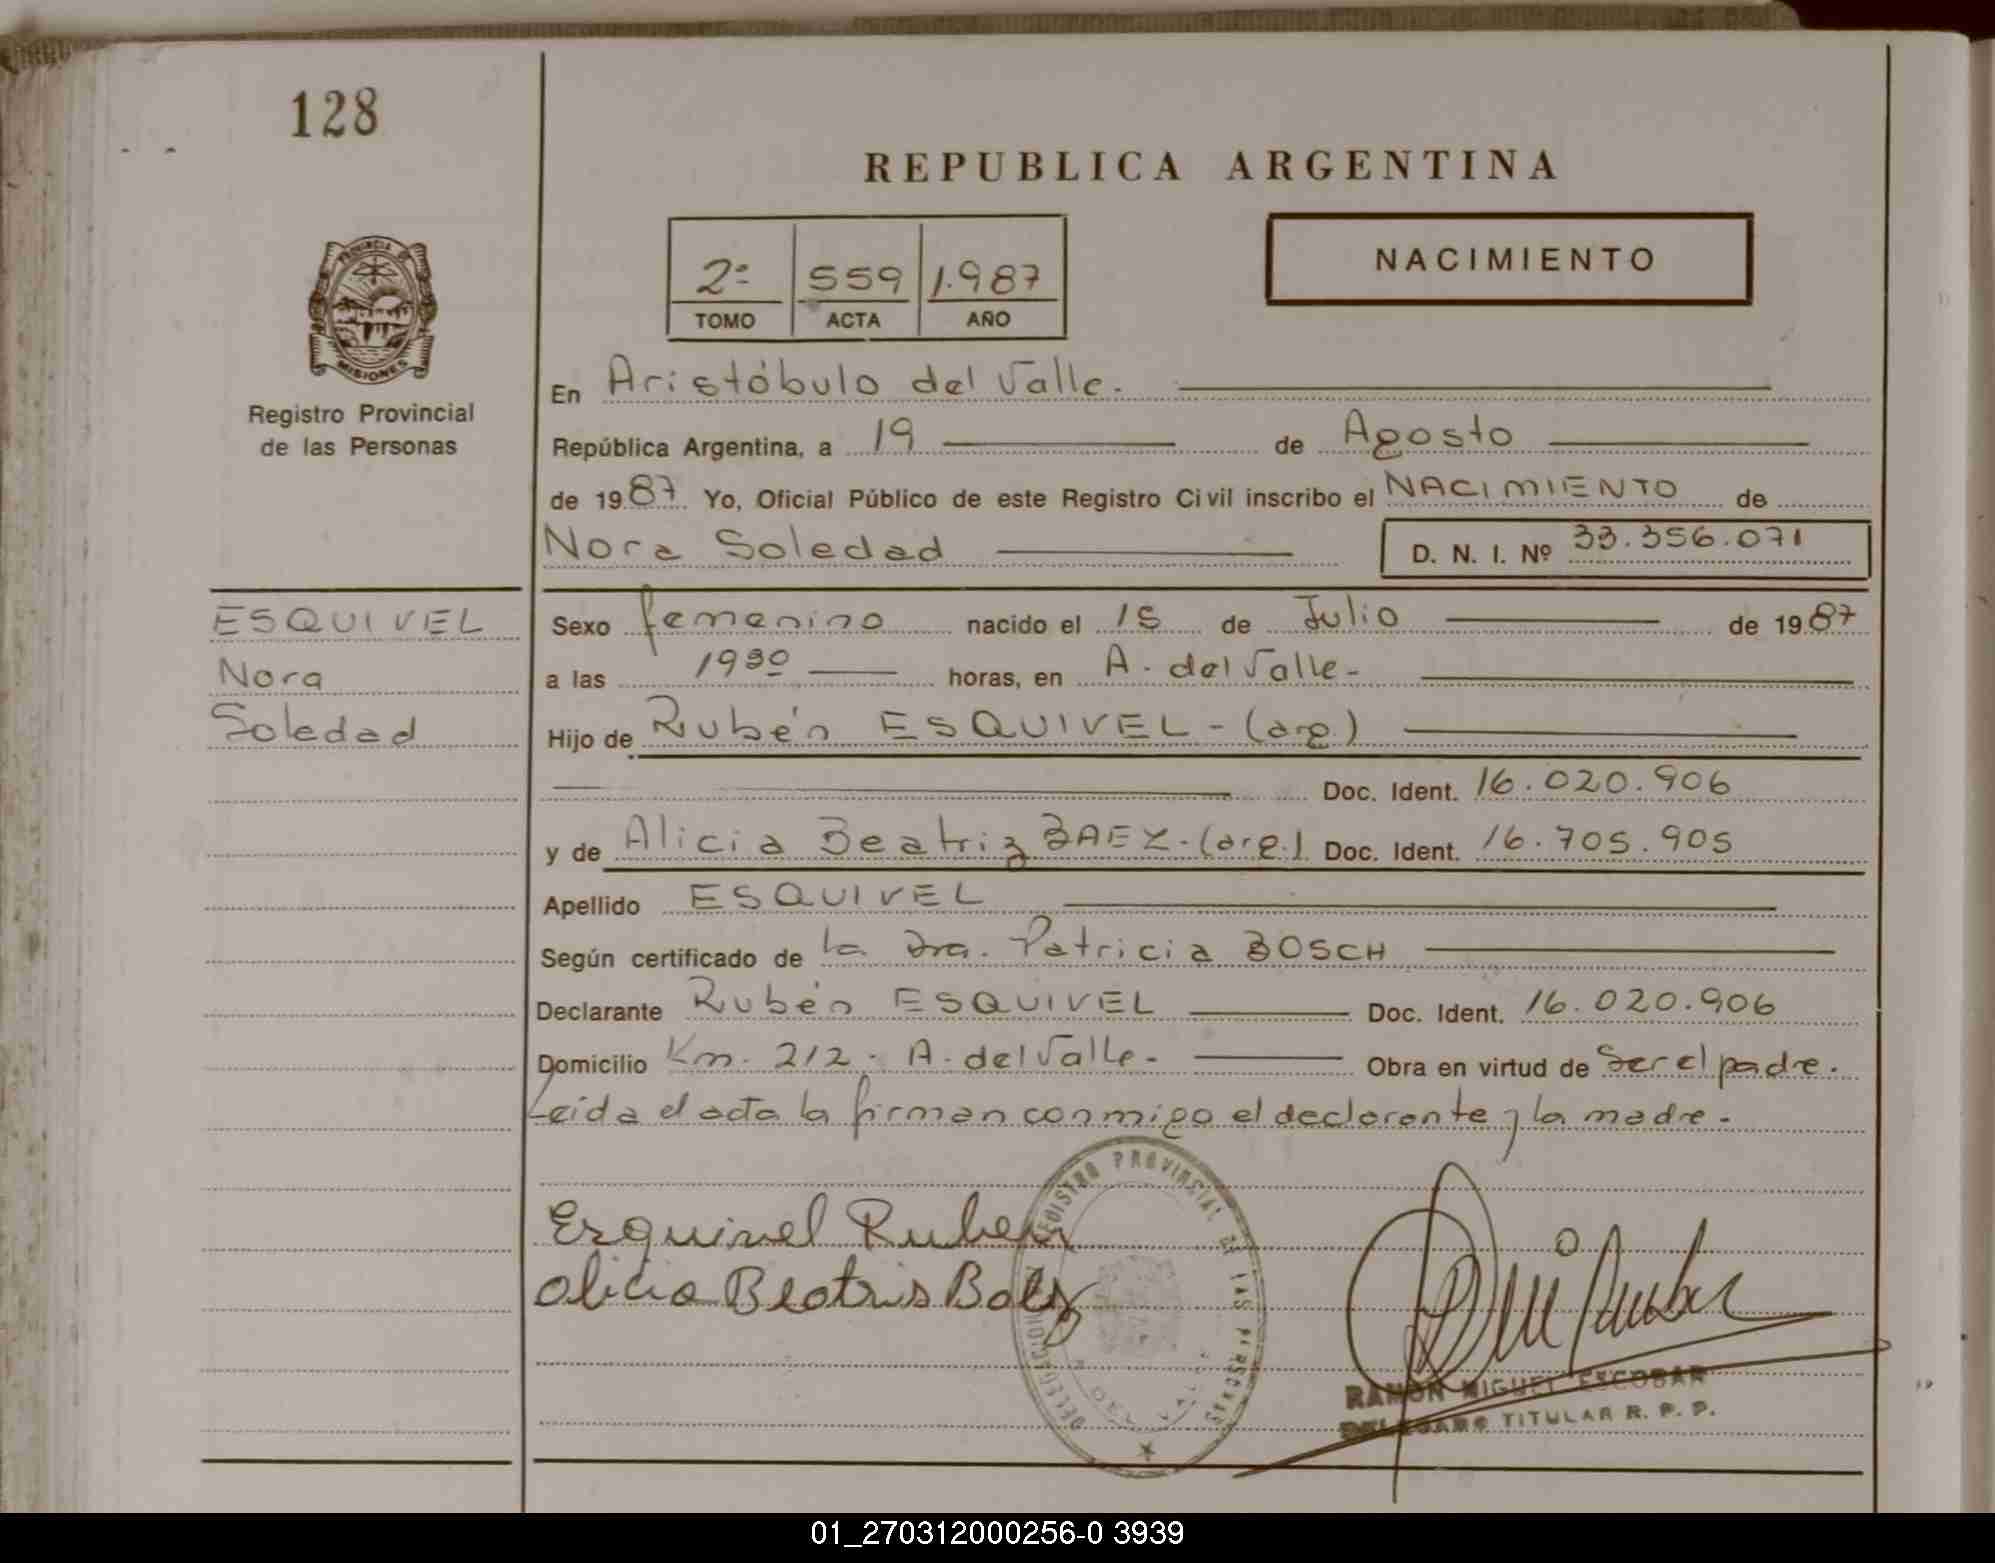 128
REPUBLICA ARGENTINA
PROVINCIA DE
MISIONES
Registro Provincial
de las Personas
2º 559 1.987
TOMO ACTA AÑO
NACIMIENTO
En Aristóbulo del Valle.
República Argentina, a 19 de Agosto
de 1987 Yo, Oficial Público de este Registro Civil inscribo el NACIMIENTO de
Nora Soledad D. N. I. Nº 33.356.071
ESQUIVEL
Nora
Soledad
Sexo femenino nacido el 15 de Julio de 1987
a las 1930 horas, en A. del Valle-
Hijo de Rubén ESQUIVEL - (arg.)
Doc. Ident. 16.020.906
y de Alicia Beatriz BAEZ. (arg.) Doc. Ident. 16.705.905
Apellido ESQUIVEL
Según certificado de la Dra. Patricia BOSCH
Declarante Rubén ESQUIVEL Doc. Ident. 16.020.906
Domicilio Km. 212. A. del Valle- Obra en virtud de Ser el padre.
Leída el acta la firman conmigo el declarante y la madre-
Esquivel Ruben
Alicia Beatris Baez
DELEGACION REGISTRO PROVINCIAL DE LAS PERSONAS
RAMON MIGUEL ESCOBAR
DELEGADO TITULAR R. P. P.
01_270312000256-0 3939